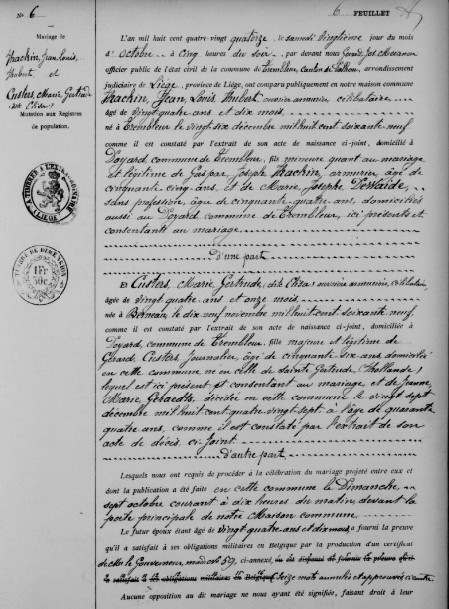 N° 6
6 FEUILLET
Mariage de
Hackin, Jean Louis,
Hubert, et
Custers, Marie Gertrude
(dite Elisa)
Mutation aux Registres
de population.
L'an mil huit cent quatre-vingt quatorze, le samedi vingtième jour du mois
d'octobre à cinq heures du soir par devant nous
officier public de l'état civil de la commune de Trembleur, Canton de Dalhem, arrondissement
judiciaire de Liége, province de Liége, ont comparu publiquement en notre maison commune
Hackin, Jean Louis Hubert ouvrier armurier, célibataire
âgé de vingt quatre ans et dix mois
né à Trembleur le vingt six décembre mil huit cent soixante neuf
comme il est constaté par l'extrait de son acte de naissance ci-joint, domicilié à
commune de Trembleur, fils mineure quant au mariage
et légitime de Gaspar Joseph Hackin, armurier, âgé de
cinquante cinq ans, et de Marie Josephe Dewaide,
sans profession, âgée de cinquante quatre ans, domiciliés
aussi au commune de Trembleur, ici présents et
consentant au mariage
D'une part
Et Custers, Marie Gertrude, (dite Elisa) ouvrière armurière, célibataire,
âgée de vingt quatre ans et onze mois
née à Berneau, le dix neuf novembre mil huit cent soixante neuf
comme il est constaté par l'extrait de son acte de naissance ci-joint, domiciliée à
commune de Trembleur, fille majeure et légitime de
Gérard Custers, Journalier, âgé de cinquante six ans domicilié
en cette commune, né en celle de Sainte Gertrude, (Hollande)
lequel est ici présent et consentant au mariage et de Jeanne
Marie Geraedts, décédée en cette commune le vingt sept
décembre mil huit cent quatre vingt sept à l'âge de quarante
quatre ans, comme il est constaté par l'extrait de son
acte de décès ci-joint
D'autre part
Lesquels nous ont requis de procéder à la célébration du mariage projeté entre eux et
dont la publication a été faite en cette commune le Dimanche
sept octobre courant à dix heures du matin, devant la
porte principale de notre Maison commune
Le futur époux étant âgé de vingt quatre ans et dix mois a fourni la preuve
qu'il a satisfait à ses obligations militaires en Belgique par la production d'un certificat
de Mr le Gouverneur, ci-annexé,
Seize mots annulés et approuvés
Aucune opposition au dit mariage ne nous ayant été signifiée, faisant droit à leur
TIMBRE DE DIMENSION
1 FR